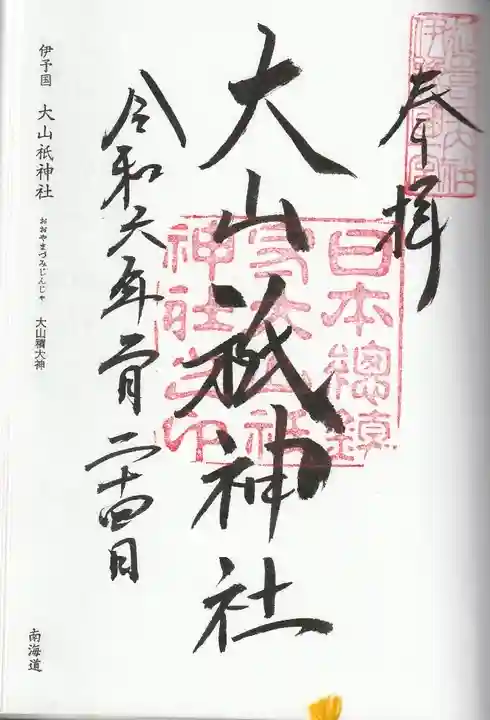 奉拝
大山祇神社
令和六年二月二十四日
日本總鎮
守大山祇
神社之印
伊予国 大山祇神社 おおやまづみじんじゃ 大山積大神
南海道